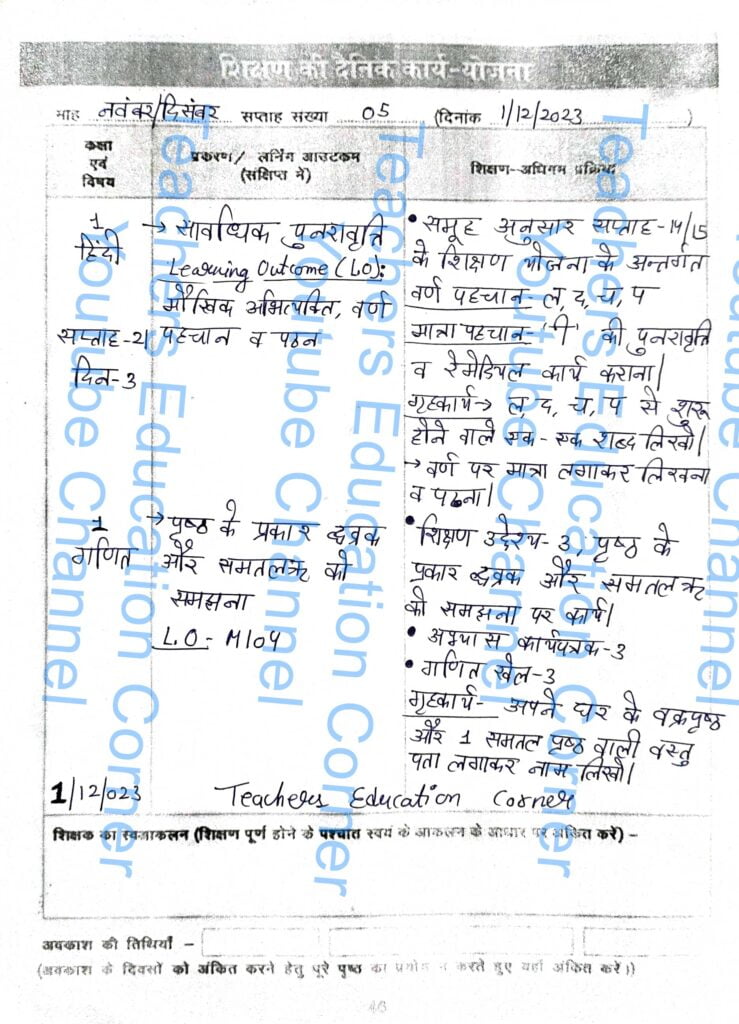 शिक्षण की दैनिक कार्य-योजना
माह नवंबर/दिसंबर सप्ताह संख्या 05 (दिनांक 1/12/2023)
कक्षा एवं विषय
प्रकरण/ लर्निंग आउटकम (संक्षिप्त में)
शिक्षण-अधिगम प्रक्रिया
1
हिंदी
सप्ताह-21
दिन-3
→ सावधिक पुनरावृत्ति
Learning Outcome (LO):
मौखिक अभिव्यक्ति, वर्ण
पहचान व पठन
• समूह अनुसार सप्ताह-14/15
के शिक्षण योजना के अन्तर्गत
वर्ण पहचान- ल, द, च, प
मात्रा पहचान- 'ी' की पुनरावृत्ति
व रेमेडियल कार्य कराना।
गृहकार्य→ ल, द, च, प से शुरू
होने वाले एक-एक शब्द लिखो।
→ वर्ण पर मात्रा लगाकर लिखना
व पढना।
1
गणित
→ पृष्ठ के प्रकार
और समतल को
समझना
L.O - M104
• शिक्षण उद्देश्य-3, पृष्ठ के
प्रकार और समतल
को समझना पर कार्य।
• अभ्यास कार्यपत्रक-3
• गणित खेल-3
गृहकार्य- अपने घर के वक्रपृष्ठ
और 1 समतल पृष्ठ वाली वस्तु
पता लगाकर नाम लिखो।
1/12/023 Teachers Education Corner
शिक्षक का स्वआकलन (शिक्षण पूर्ण होने के पश्चात स्वयं के आकलन के आधार पर अंकित करें) –
अवकाश की तिथियाँ –
(अवकाश के दिवसों को अंकित करने हेतु पूरे पृष्ठ का प्रयोग न करते हुए यहाँ अंकित करें।)
Teachers Education Corner
Youtube Channel
Teachers Education Corner
Youtube Channel
Teachers Education Corner
Youtube Channel